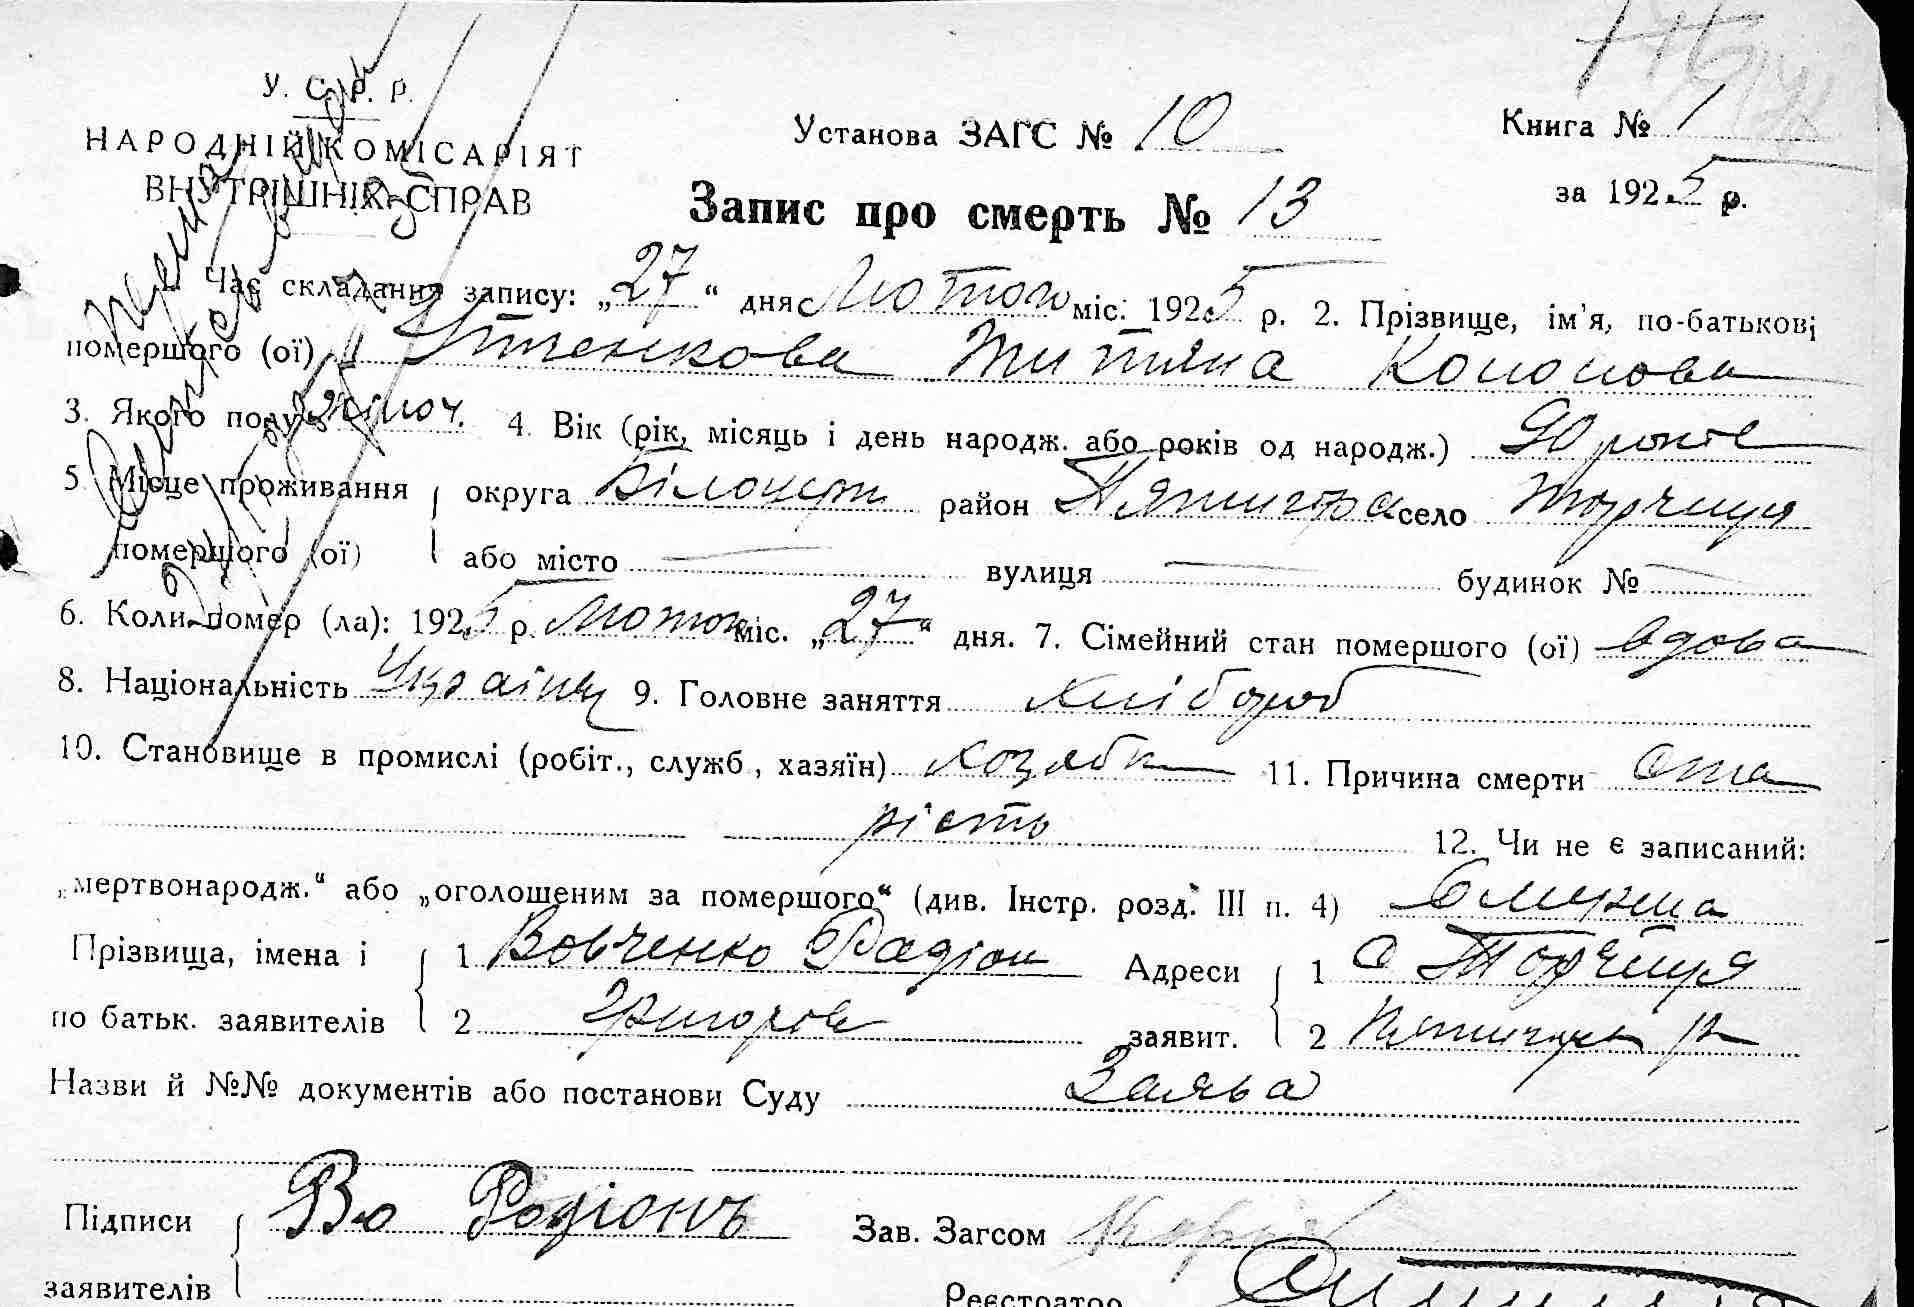 У. С. Р. Р.
НАРОДНІЙ КОМІСАРІЯТ
ВНУТРІШНІХ СПРАВ
Установа ЗАГС № 10
Книга № 1
за 1925 р.
Запис про смерть № 13
Час складання запису: „27“ дня Лютого міс. 1925 р. 2. Прізвище, ім'я, по-батькові
помершого (ої) Титяна Кононова
3. Якого полу жіноч. 4. Вік (рік, місяць і день народж. або років од народж.) 90 років
5 Місце проживання помершого (ої) округа Білоцерк район Пятигор село Торчиця
або місто — вулиця — будинок № —
6. Коли помер (ла): 1925 р. Лютого міс. „27“ дня. 7. Сімейний стан помершого (ої) вдова
8. Національність Україн 9. Головне заняття хлібороб
10. Становище в промислі (робіт., служб., хазяїн) хозяйка 11. Причина смерти Ста
рість 12. Чи не є записаний:
„мертвонародж.“ або „оголошеним за помершого“ (див. Інстр. розд. III п. 4) Смерша
Прізвища, імена і 1 Вовченко Радіон Адреси 1 с Торчиця
по батьк. заявителів 2 Григоров заявит. 2 р
Назви й №№ документів або постанови Суду Заява
Підписи Во Родіонъ Зав. Загсом
заявителів Реєстратор